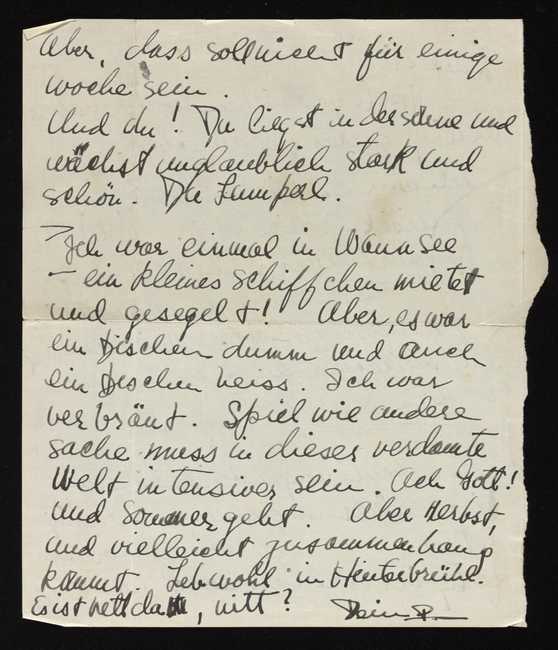 Aber, dass soll nicht für einige
woche sein.
Und du! Du liegst in der sonne und
wächst unglaublich stark und
schön. Du Lumperl.
Ich war einmal in Wannsee
– ein kleines schiffchen mietet
und gesegelt! Aber, es war
ein bischen dumm und auch
ein bischen heiss. Ich war
verbränt. Spiel wie andere
sache muss in dieser verdamte
Welt intensiver sein. Ach Gott!
und Sommer geht. Aber Herbst,
und vielleicht zusammenhang
kommt. Leb wohl in Hinterbrühl.
Es ist nett da, nitt? Dein P.